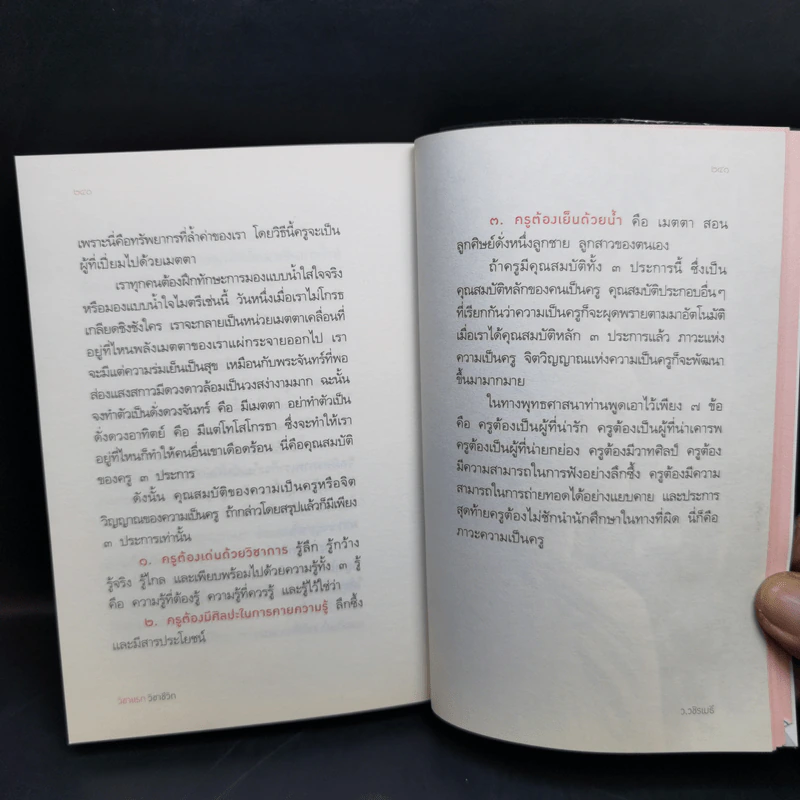 ๒๔๐
เพราะนี่คือทรัพยากรที่ล้ำค่าของเรา โดยวิธีนี้ครูจะเป็น
ผู้ที่เปี่ยมไปด้วยเมตตา
เราทุกคนต้องฝึกทักษะการมองแบบน้ำใสใจจริง
หรือมองแบบน้ำใจไมตรีเช่นนี้ วันหนึ่งเมื่อเราไม่โกรธ
เกลียดชิงชังใคร เราจะกลายเป็นหน่วยเมตตาเคลื่อนที่
อยู่ที่ไหนพลังเมตตาของเราแผ่กระจายออกไป เรา
จะมีแต่ความร่มเย็นเป็นสุข เหมือนกับพระจันทร์ที่พอ
ส่องแสงสกาวมีดวงดาวล้อมเป็นวงสง่างามมาก ฉะนั้น
จงทำตัวเป็นดั่งดวงจันทร์ คือ มีเมตตา อย่าทำตัวเป็น
ดั่งดวงอาทิตย์ คือ มีแต่โทโสโกรธา ซึ่งจะทำให้เรา
อยู่ที่ไหนก็ทำให้คนอื่นเขาเดือดร้อน นี่คือคุณสมบัติ
ของครู ๓ ประการ
ดังนั้น คุณสมบัติของความเป็นครูหรือจิต
วิญญาณของความเป็นครู ถ้ากล่าวโดยสรุปแล้วก็มีเพียง
๓ ประการเท่านั้น
๑. ครูต้องเด่นด้วยวิชาการ รู้ลึก รู้กว้าง
รู้จริง รู้ไกล และเพียบพร้อมไปด้วยความรู้ทั้ง ๓ รู้
คือ ความรู้ที่ต้องรู้ ความรู้ที่ควรรู้ และรู้ไว้ใช่ว่า
๒. ครูต้องมีศิลปะในการคายความรู้ ลึกซึ้ง
และมีสารประโยชน์
วิชาแรก วิชาชีวิต
๒๔๑
๓. ครูต้องเย็นด้วยน้ำ คือ เมตตา สอน
ลูกศิษย์ดั่งหนึ่งลูกชาย ลูกสาวของตนเอง
ถ้าครูมีคุณสมบัติทั้ง ๓ ประการนี้ ซึ่งเป็น
คุณสมบัติหลักของคนเป็นครู คุณสมบัติประกอบอื่นๆ
ที่เรียกกันว่าความเป็นครูก็จะผุดพรายตามมาอัตโนมัติ
เมื่อเราได้คุณสมบัติหลัก ๓ ประการแล้ว ภาวะแห่ง
ความเป็นครู จิตวิญญาณแห่งความเป็นครูก็จะพัฒนา
ขึ้นมามากมาย
ในทางพุทธศาสนาท่านพูดเอาไว้เพียง ๗ ข้อ
คือ ครูต้องเป็นผู้ที่น่ารัก ครูต้องเป็นผู้ที่น่าเคารพ
ครูต้องเป็นผู้ที่น่ายกย่อง ครูต้องมีวาทศิลป์ ครูต้อง
มีความสามารถในการฟังอย่างลึกซึ้ง ครูต้องมีความ
สามารถในการถ่ายทอดได้อย่างแยบคาย และประการ
สุดท้ายครูต้องไม่ชักนำนักศึกษาในทางที่ผิด นี่ก็คือ
ภาวะความเป็นครู
ว.วชิรเมธี